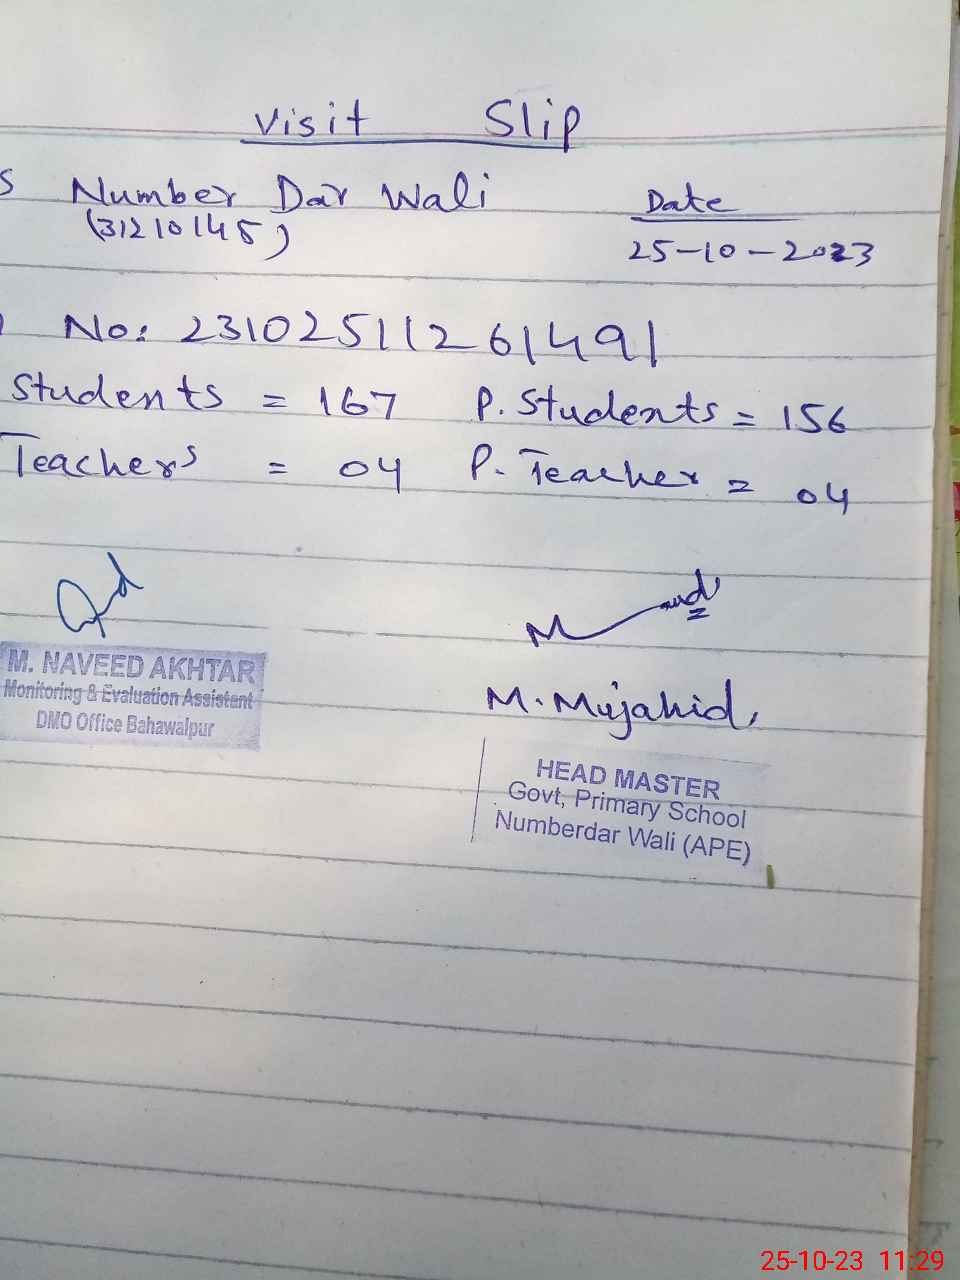 Visit Slip
S Number Dar Wali
(31210145)
Date
25-10-2023
No: 23102511261491
Students = 167 P. Students = 156
Teachers = 04 P. Teacher = 04
M. NAVEED AKHTAR
Monitoring & Evaluation Assistent
DMO Office Bahawalpur
M. Mujahid,
HEAD MASTER
Govt, Primary School
Numberdar Wali (APE)
25-10-23 11:29